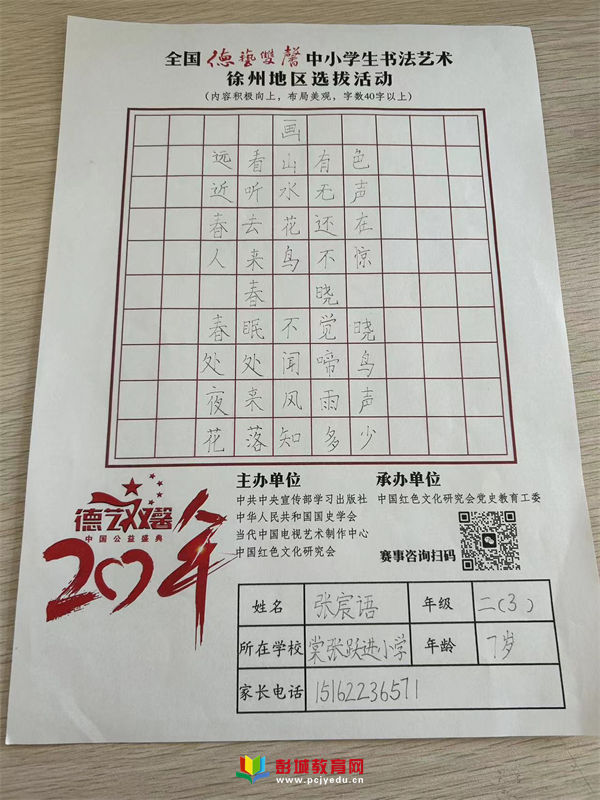 全国德藝雙馨中小学生书法艺术
徐州地区选拔活动
(内容积极向上，布局美观，字数40字以上)
画
远看山有色
近听水无声
春去花还在
人来鸟不惊
春 晓
春眠不觉晓
处处闻啼鸟
夜来风雨声
花落知多少
德艺双馨
中国公益盛典
20年
主办单位
中共中央宣传部学习出版社
中华人民共和国国史学会
当代中国电视艺术制作中心
中国红色文化研究会
承办单位
中国红色文化研究会党史教育工委
赛事咨询扫码
姓名 张宸语 年级 二(3)
所在学校 棠张跃进小学 年龄 7岁
家长电话 15162236571
彭城教育网
www.pcjyedu.cn